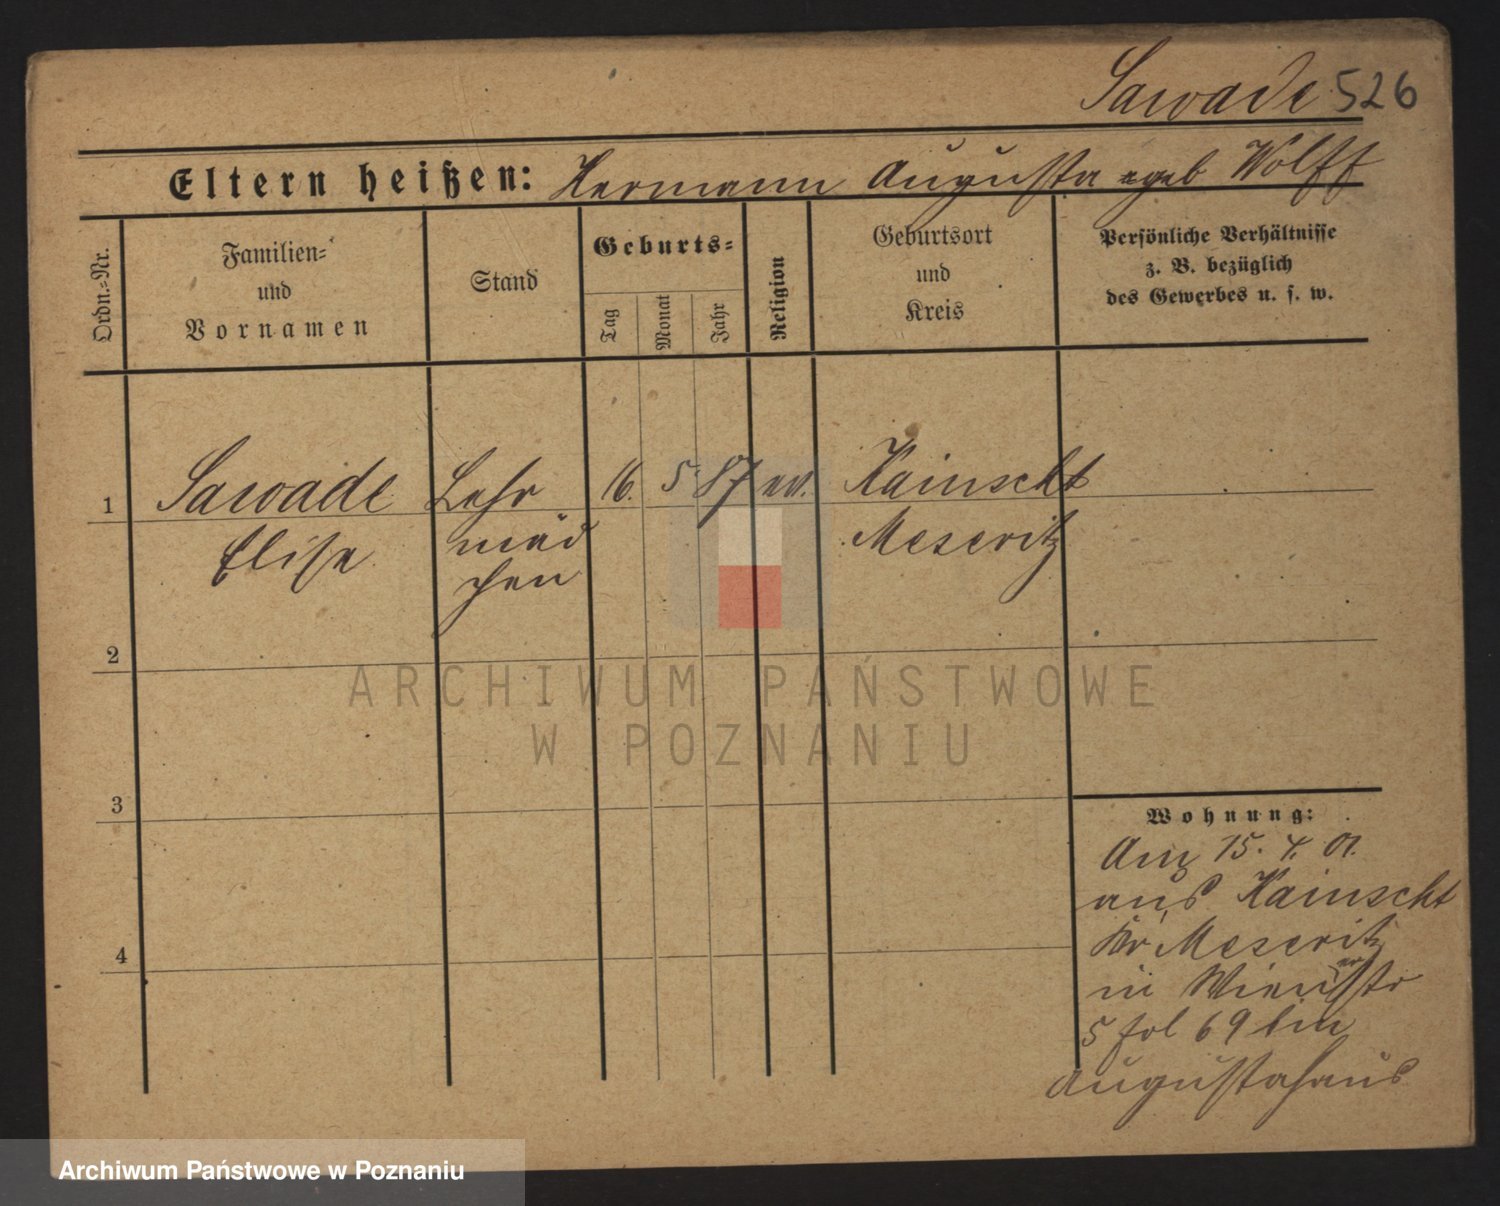 Sawade 526
Eltern heißen: Hermann Augusta geb Wolff
Ordn.-Nr.
Familien-
und
Vornamen
Stand
Geburts-
Tag
Monat
Jahr
Religion
Geburtsort
und
Kreis
Persönliche Verhältnisse
z. B. bezüglich
des Gewerbes u. s. w.
1 Sawade Lehr 16. 5 87 ev. Kainscht
Elise mäd Meseritz
chen
2
3
4
Wohnung:
Am 15. 4. 01.
aus Kainscht
Kr Meseritz
in Wienerstr
5 fol 69 bin
Augustahaus
ARCHIWUM PAŃSTWOWE
W POZNANIU
Archiwum Państwowe w Poznaniu